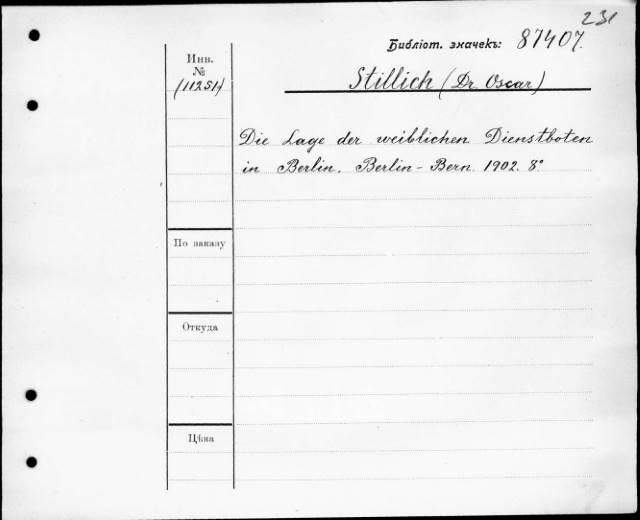 231
Библіот. значекъ: 87407.
Инв.
№
(11251)
Stillich (Dr. Oscar)
Die Lage der weiblichen Dienstboten
in Berlin. Berlin-Bern 1902. 8°
По заказу
Откуда
Цѣна